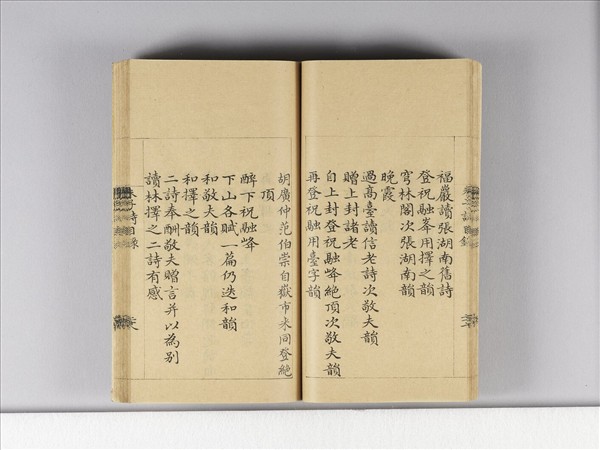 福嚴讀張湖南舊詩
登祝融峯用擇之韻
穹林閣次張湖南韻
晚霞
過高臺讀信老詩次敬夫韻
贈上封諸老
自上封登祝融峰絶頂次敬夫韻
再登祝融用臺字韻
胡廣仲范伯崇自嶽市来同登絶
頂
醉下祝融峰
下山各賦一篇仍迭和韻
和敬夫韻
和擇之韻
二詩奉酬敬夫贈言并以為別
讀林擇之二詩有感